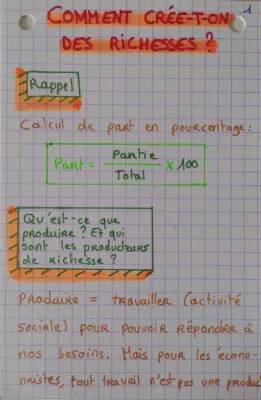 1
COMMENT CRÉE-T-ON
DES RICHESSES ?
Rappel
Calcul de part en pourcentage :
PART = Partie / Total × 100
Qu'est-ce que
produire ? Et qui
sont les producteurs
de richesse ?
PRODUIRE = travailler (activité
sociale) pour pouvoir répondre à
nos besoins. Mais pour les écono-
mistes, tout travail n'est pas une